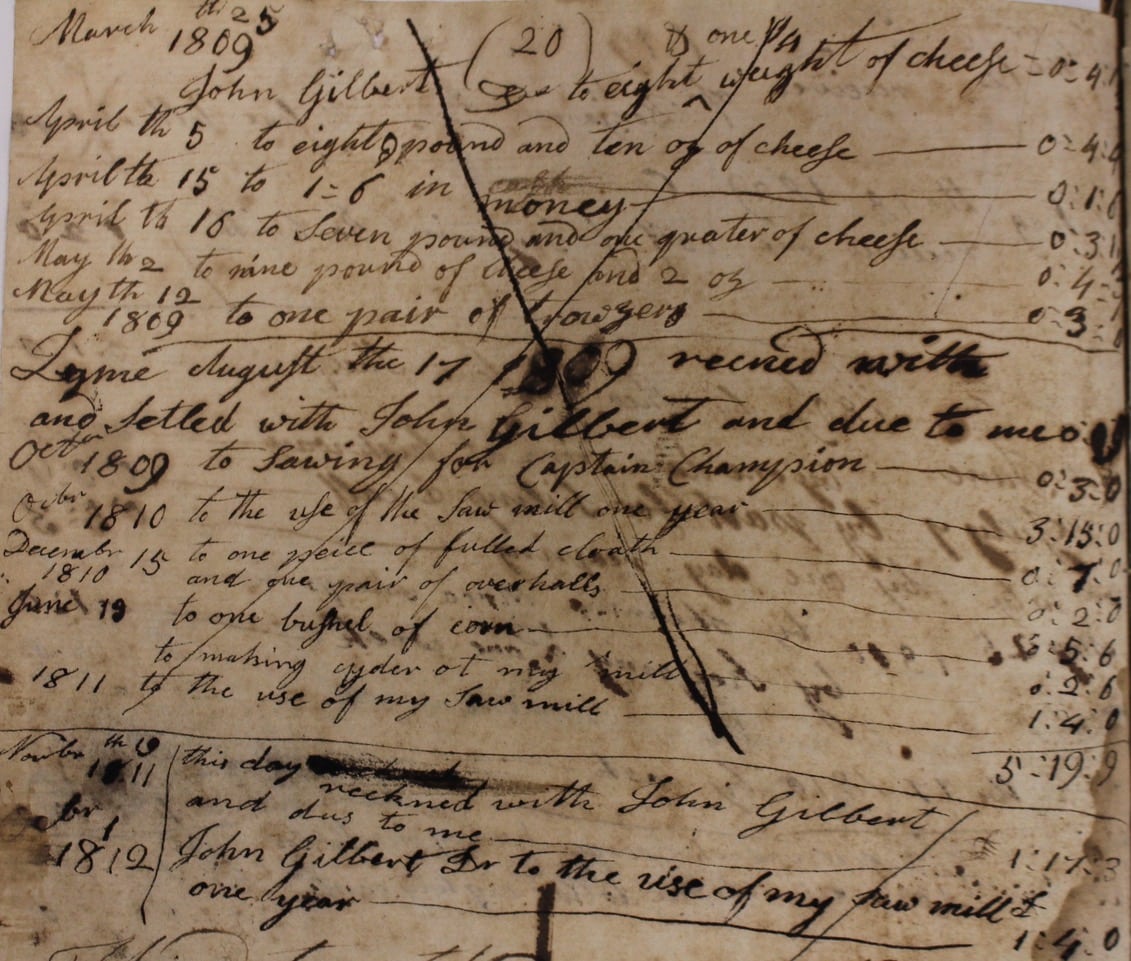 March th 25
1809 (20) & one 1/4
John Gilbert Dr to eight ^ weight of cheese - 0=4:
April th 5 to eight pound and ten oz of cheese 0:4:
April th 15 to 1=6 in money 0:1:6
April th 16 to Seven pound and one quater of cheese 0:3:
May th 2 to nine pound of cheese and 2 oz 0:4:
May th 12
1809 to one pair of trowzers 0:3:
Lyme August the 17 1809 recned with
and Setled with John Gilbert and due to me 0
Octbr 1809 to Sawing for Captain Champion 0:3:0
Ocbr 1810 to the use of the Saw mill one year 3:15:0
Decembr 15 to one peice of fulled cloath 0:7:0
1810 and one pair of overhalls 0:2:0
June 19 to one bushel of corn 0:5:6
to making cyder at my mill 0:2:6
1811 to the use of my Saw mill 1:4:0
5:19:9
Novbr th 9
1811 this day reckned with John Gilbert
and dus to me 1:17:3
br 1
1812 John Gilbert Dr to the use of my saw mill £
one year 1:4:0